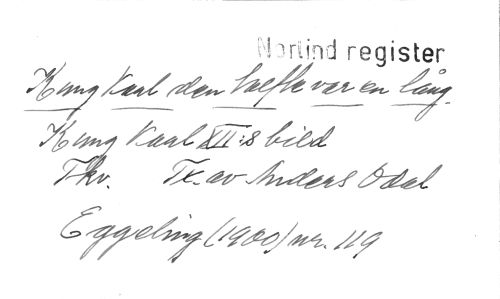 Norlind register
Kung Karl den tolfte var en lång.
Kung Karl XII:s bild
Tkv. Tx. av Anders Odel
Eggeling (1900) nr. 119